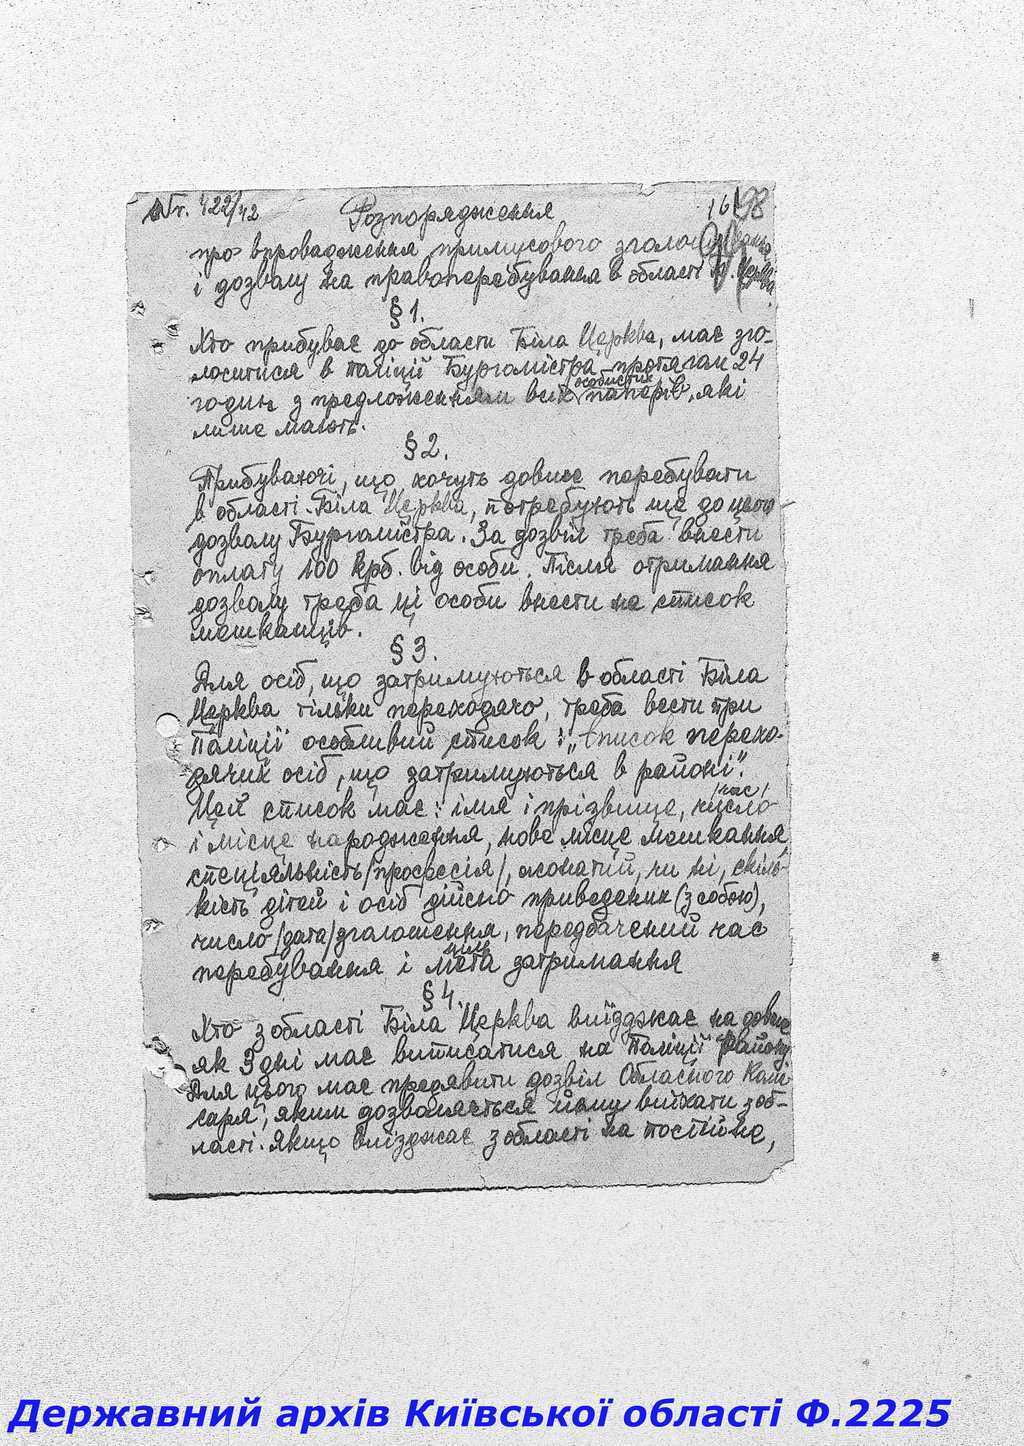 Nr. 422/42
Розпорядження
16 98
про впровадження примусового зголошування
і дозволу на правоперебування в області Б. Церква.
§ 1.
Хто прибуває до области Біла Церква, має зго-
лоситися в Поліції Бургомістра протягом 24
годин з предложенням всіх особистих паперів, які
лише мають.
§ 2.
Прибуваючі, що хочуть довше перебувати
в області Біла Церква, потребують ще до цього
дозволу Бургомістра. За дозвіл треба внести
оплату 100 крб. від особи. Після отримання
дозволу треба ці особи внести на список
мешканців.
§ 3.
Для осіб, що затримуються в області Біла
Церква тільки переходячо, треба вести при
Поліції особливий список: „Список перехо-
дячих осіб, що затримуються в районі".
Цей список має: імя і прізвище, число /час/
і місце народження, нове місце мешкання,
спеціяльність /професія/, жонатий, чи ні, скіль-
кість дітей і осіб дійсно приведених (з собою),
число /дата/ зголошення, передбачений час
перебування і мета ціль затримання
§ 4.
Хто з області Біла Церква виїзджає на довше
як 3 дні має виписатися на Поліції Району
Для цього має предявити дозвіл Обласного Комі-
саря, яким дозволяється йому виїхати з об-
ласті. Якщо виїзджає з області на постійне,
Державний архів Київської області Ф.2225